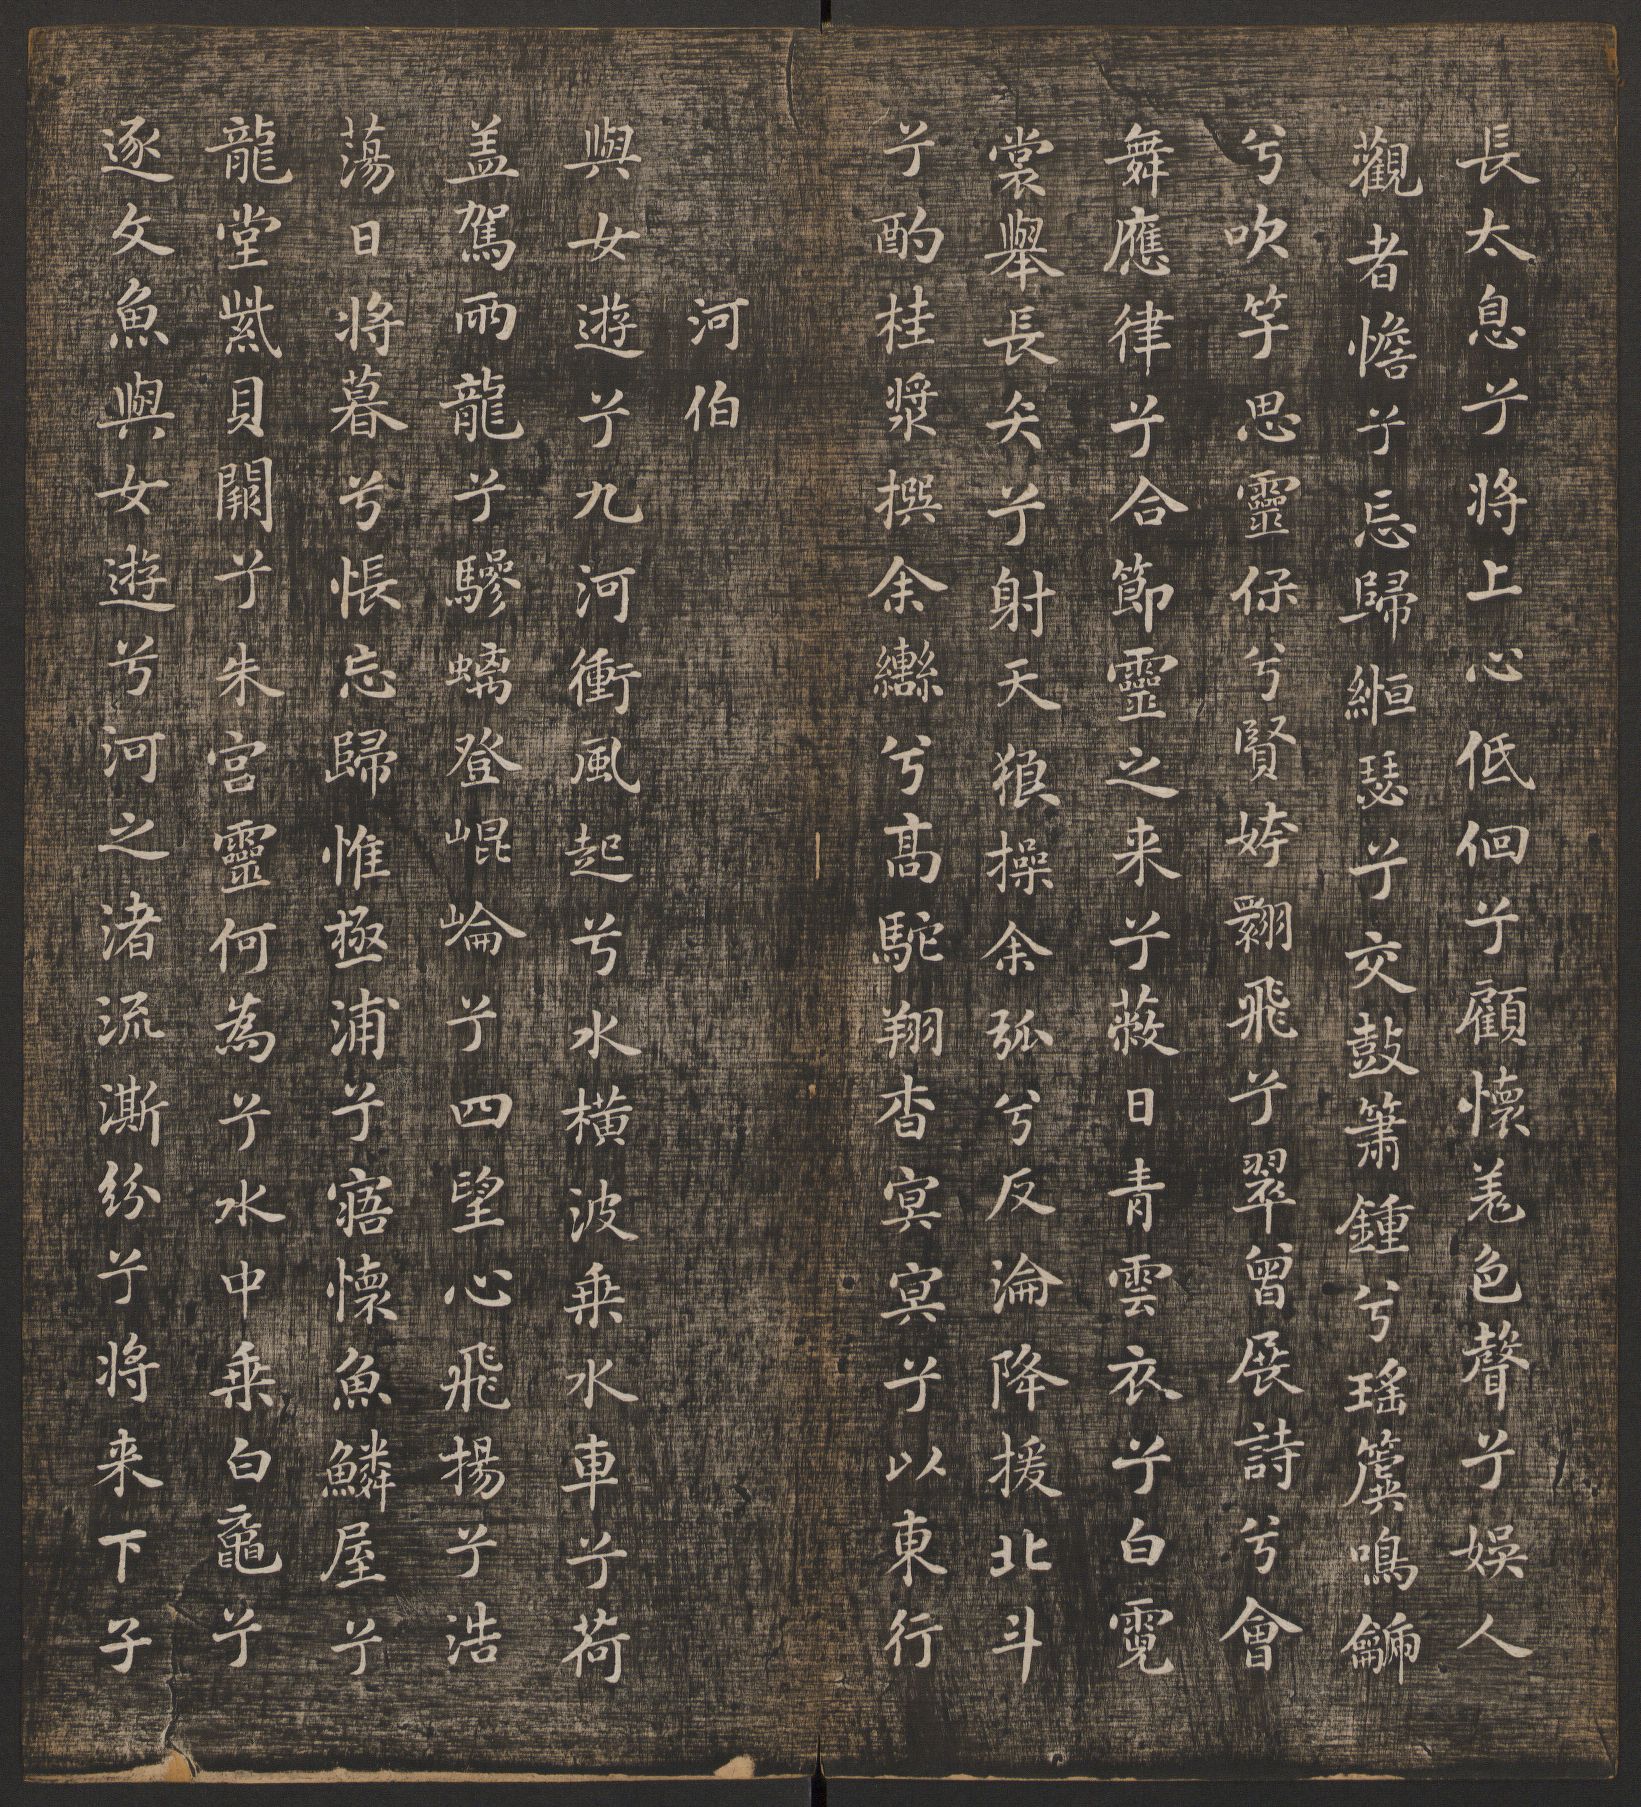 長太息兮将上心低佪兮顧懷羌色聲兮娯人
觀者憺兮忘歸縆瑟兮交鼓簫鍾兮瑤簴鳴鯆
兮吹竽思靈保兮賢姱翾飛兮翠曾展詩兮會
舞應律兮合節靈之来兮蔽日青雲衣兮白霓
裳舉長矢兮射天狼操余弧兮反淪降援北斗
兮酌桂漿撰余轡兮高駝翔杳冥冥兮以東行
河伯
與女遊兮九河衝風起兮水橫波乗水車兮荷
盖駕兩龍兮驂螭登崐崘兮四望心飛揚兮浩
蕩日将暮兮悵忘歸惟極浦兮寤懷魚鱗屋兮
龍堂紫貝闕兮朱宮靈何為兮水中乗白黿兮
逐文魚與女遊兮河之渚流澌紛兮将来下子